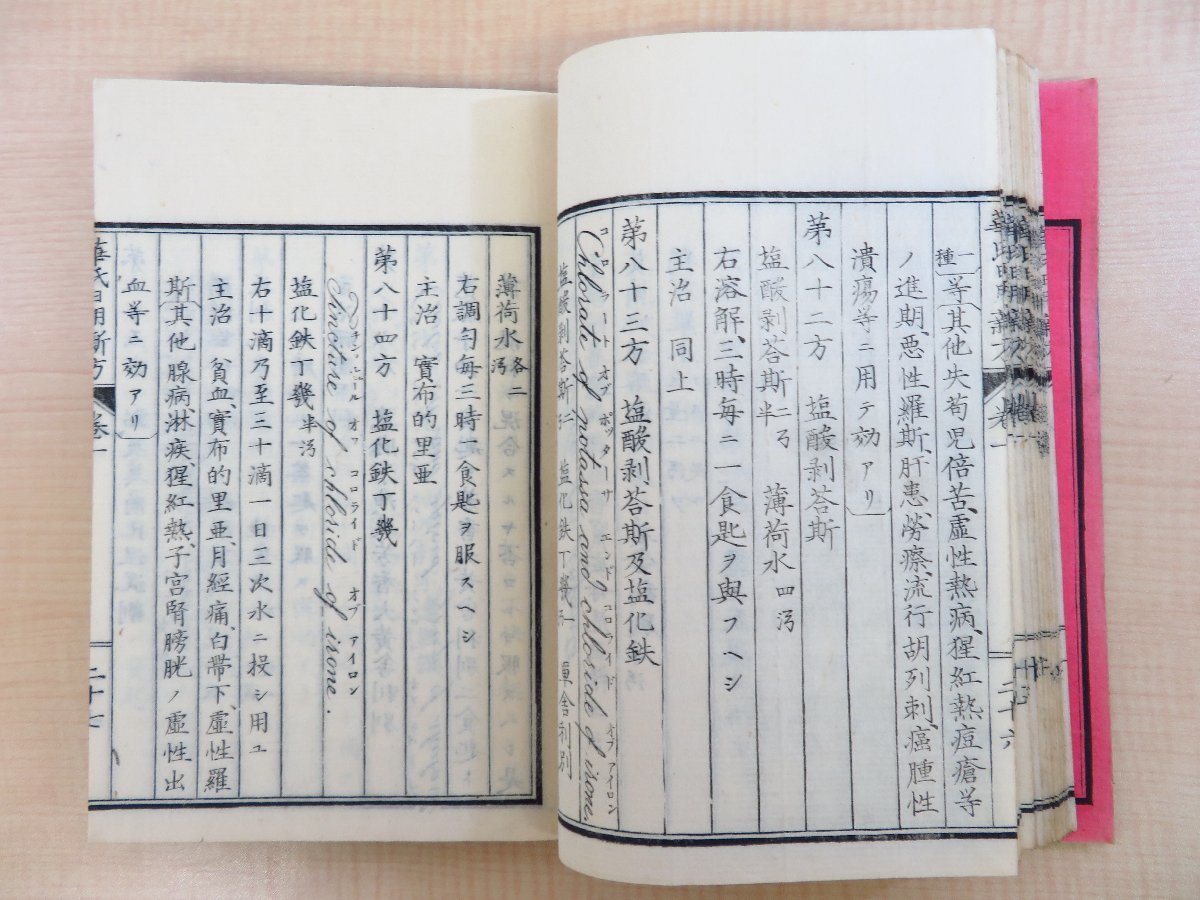 一種等其他失荀児倍苦、虚性熱病、猩紅熱痘瘡等
ノ進期、悪性羅斯、肝患、勞瘵、流行胡列刺、癌腫性
潰瘍等ニ用テ効アリ
第八十二方 塩酸剥荅斯
塩酸剥荅斯 二ヲ半 薄荷水 四
右溶解、三時毎ニ一食匙ヲ與フヘシ
主治同上
第八十三方 塩酸剥荅斯及塩化鉄
Chlorate of potassa and chloride of irone.
塩酸剥荅斯 塩化鉄丁幾 單舎利別
二十六
薄荷水 各二
右調匀毎三時一食匙ヲ服スヘシ
主治 實布的里亜
第八十四方 塩化鉄丁幾
チンクチュール オフ コロライド オブ アイロン
Tincture of chloride of irone.
塩化鉄丁幾 半
右十滴乃至三十滴一日三次水ニ投シ用ユ
主治 貧血實布的里亜、月經痛、白帯下、虚性羅
斯其他腺病、淋疾、猩紅熱、子宮腎膀胱ノ虚性出
血等ニ効アリ
華氏日用新方 巻一 二十七